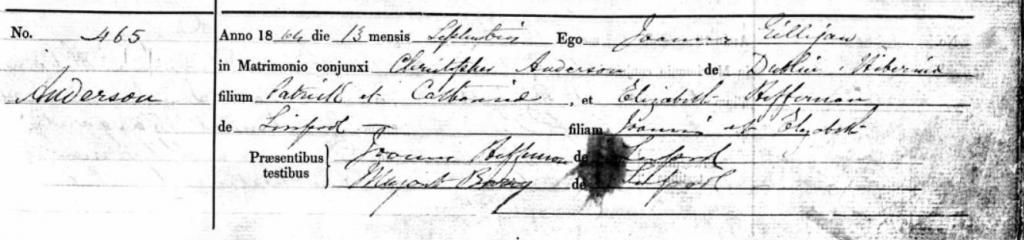 No. 465 Anno 1864 die 13 mensis Septembris Ego Joanna Gilligan
in Matrimonio conjunxi Christopher Anderson de Dublin Hibernia
Anderson filium Patrick et Catharina, et Elizabeth Heffernan
de Liverpool filiam Joannis et Elizabeth
Præsentibus testibus } Joanne Heffernan de Liverpool
de Liverpool